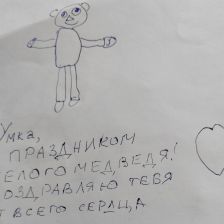 Умка,
ПРАЗДНИКОМ
ЕЛОГО МЕДВЕДЯ!
ОЗДРАВЛЯЮ ТЕБЯ
Т ВСЕГО СЕРДЦА